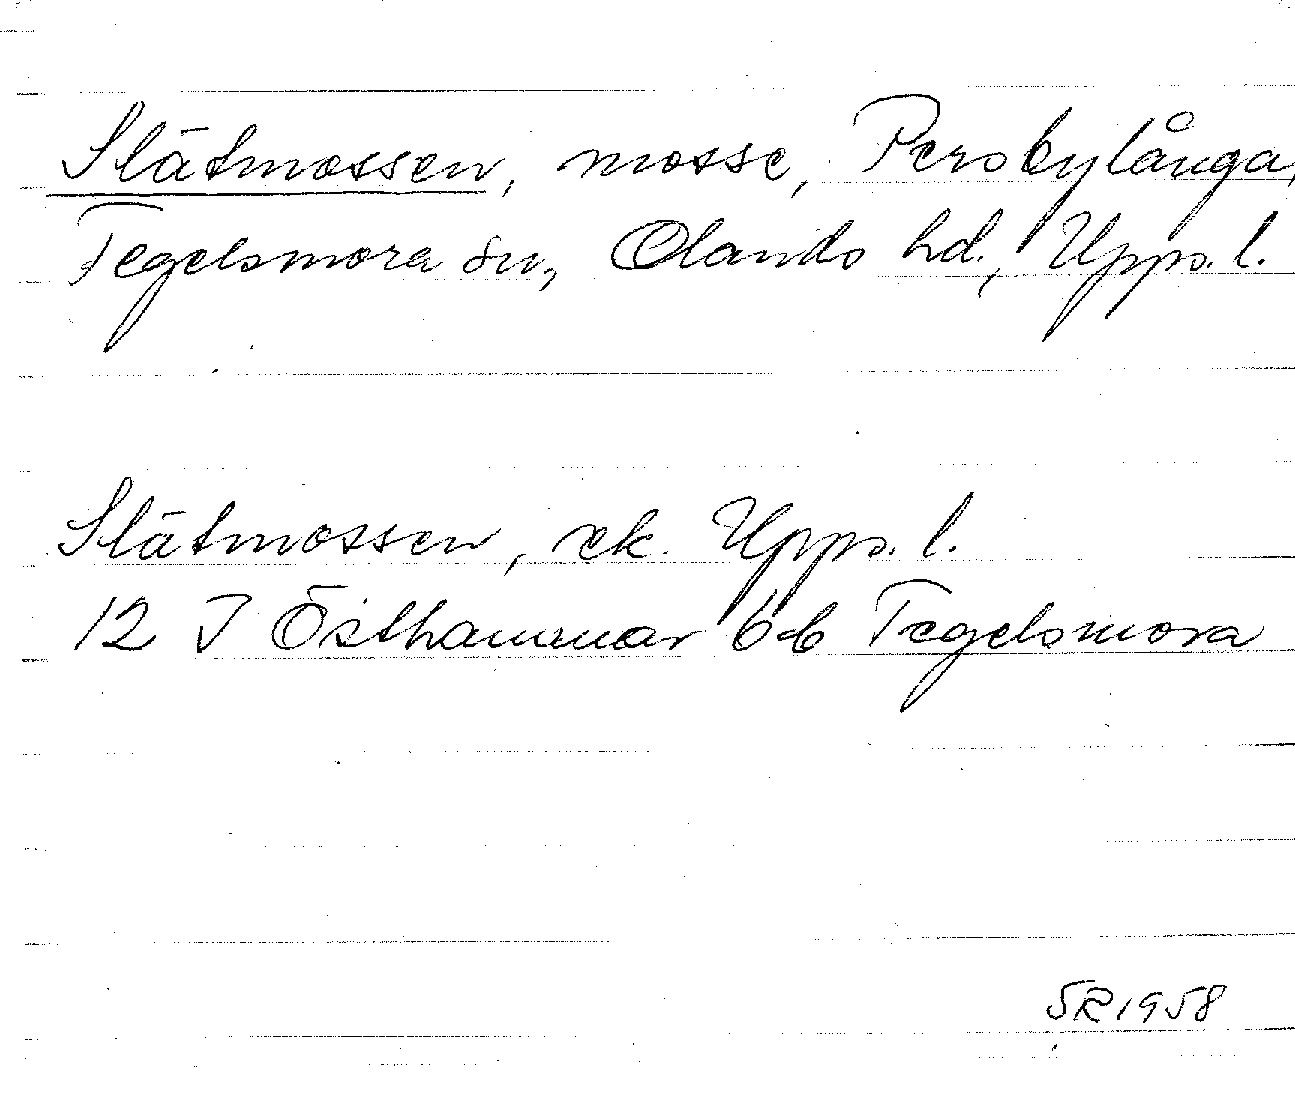 Slåtmossen, mosse, Persbylånga,
Tegelsmora sn., Olands hd., Upps. l.
Slåtmossen, ek. Upps. l.
12 I Östhammar 6b Tegelsmora
SR 1958